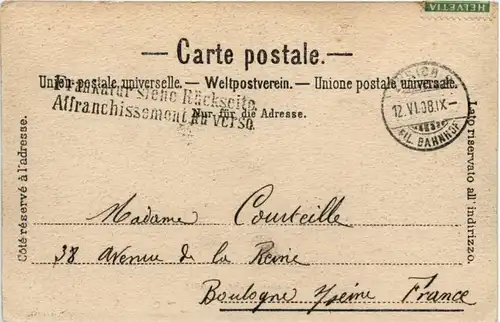 HELVETIA
— Carte postale. —
Union postale universelle. — Weltpostverein. — Unione postale universale.
Frankatur siehe Rückseite
Affranchissement au verso.
Nur für die Adresse.
12.VI.08.IX–
FIL. BAHNHOF
Côté réservé à l'adresse.
Lato riservato all' indirizzo.
Madame Courteille
38 Avenue de la Reine
Boulogne s/seine France